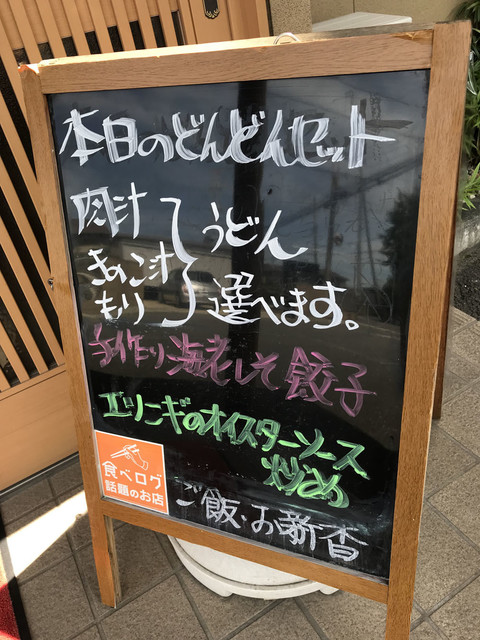 本日のどんどんセット
肉汁
きのこ汁
もり
うどん
選べます。
手作り海老しそ餃子
エリンギのオイスターソース
炒め
ご飯・お新香
食べログ
話題のお店